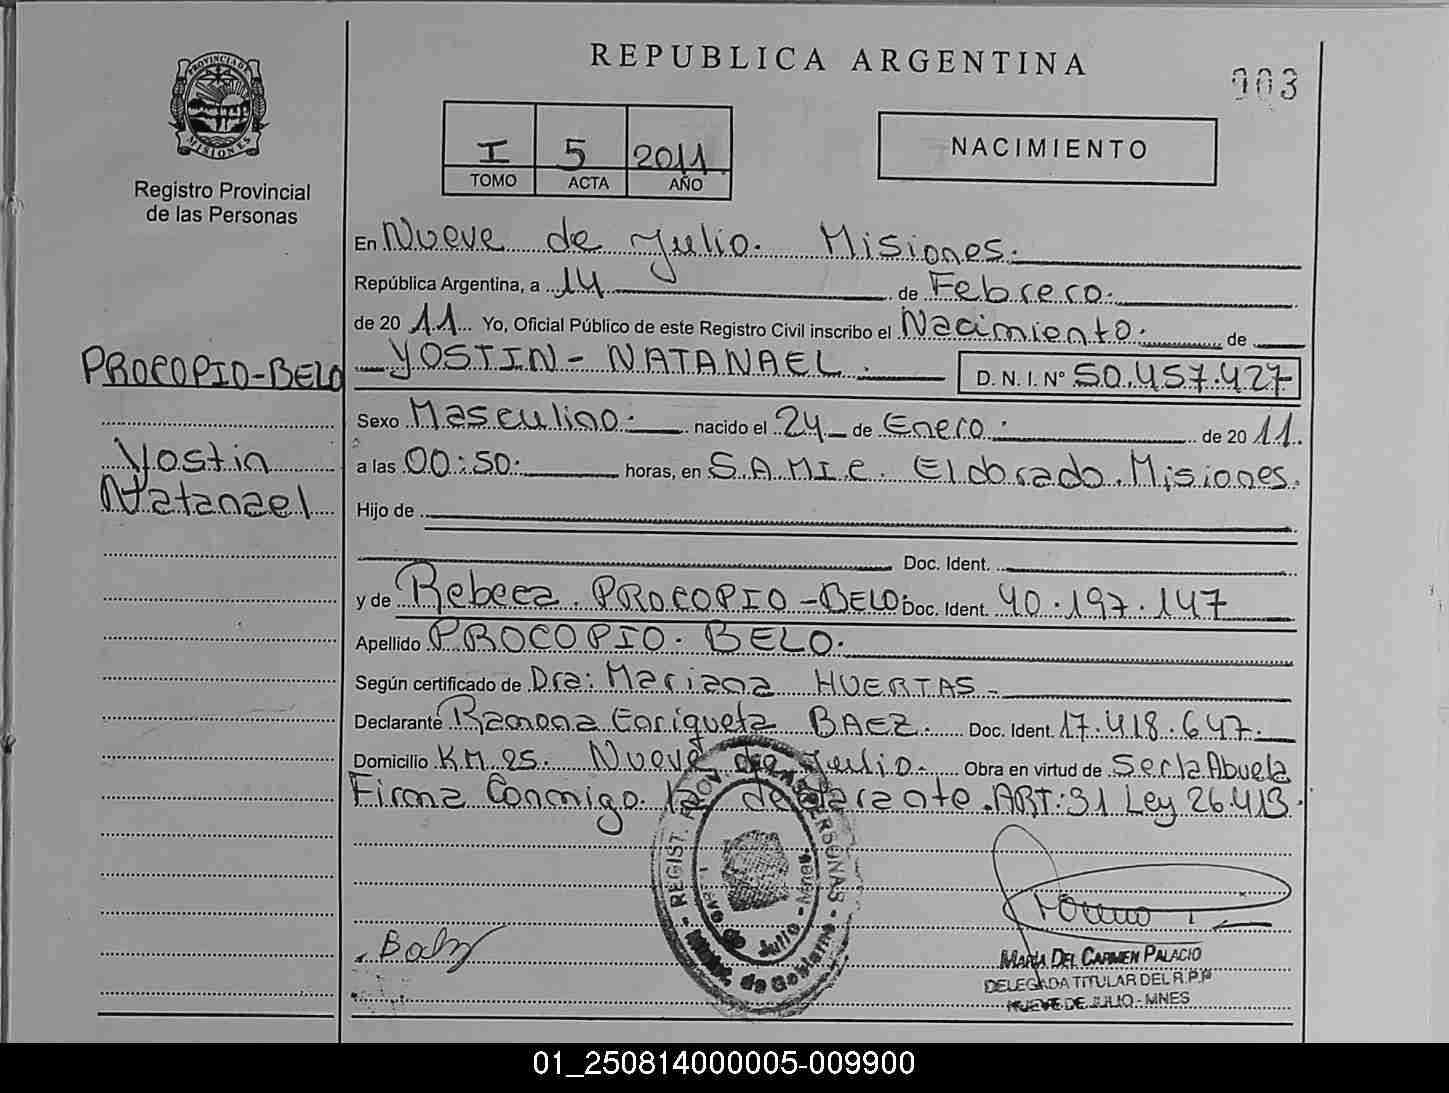 REPUBLICA ARGENTINA
003
PROVINCIA DE MISIONES
Registro Provincial
de las Personas
I 5 2011
TOMO ACTA AÑO
NACIMIENTO
En Nueve de Julio. Misiones.
República Argentina, a 14 de Febrero.
de 20 11 Yo, Oficial Público de este Registro Civil inscribo el Nacimiento. de
YOSTIN - NATANAEL. D. N. I. Nº 50.457.427
PROCOPIO-BELO
Yostin
Natanael
Sexo Masculino. nacido el 24 de Enero. de 20 11.
a las 00:50. horas, en S.A.M.I.C. Eldorado. Misiones.
Hijo de
Doc. Ident.
y de Rebeca. PROCOPIO-BELO. Doc. Ident. 40.197.147
Apellido PROCOPIO. BELO.
Según certificado de Dra: Mariana HUERTAS-
Declarante Ramona Enriqueta BAEZ. Doc. Ident. 17.418.647.
Domicilio K.M. 25. Nueve de Julio. Obra en virtud de Ser la Abuela
Firma Conmigo la declarante. ART: 31 Ley 26.413.
REGIST. PROV. DE LAS PERSONAS
de Julio - Mnes.
Minist. de Gobierno
MARIA DEL CARMEN PALACIO
DELEGADA TITULAR DEL R.P.P
NUEVE DE JULIO - MNES
01_250814000005-009900